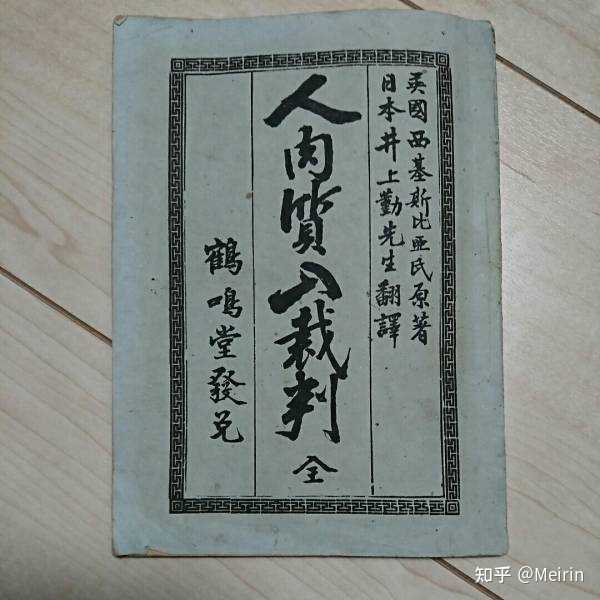 英國西基斯比亜氏原著
日本井上勤先生翻譯
人肉質入裁判 全
鶴鳴堂發兌
知乎 @Meirin